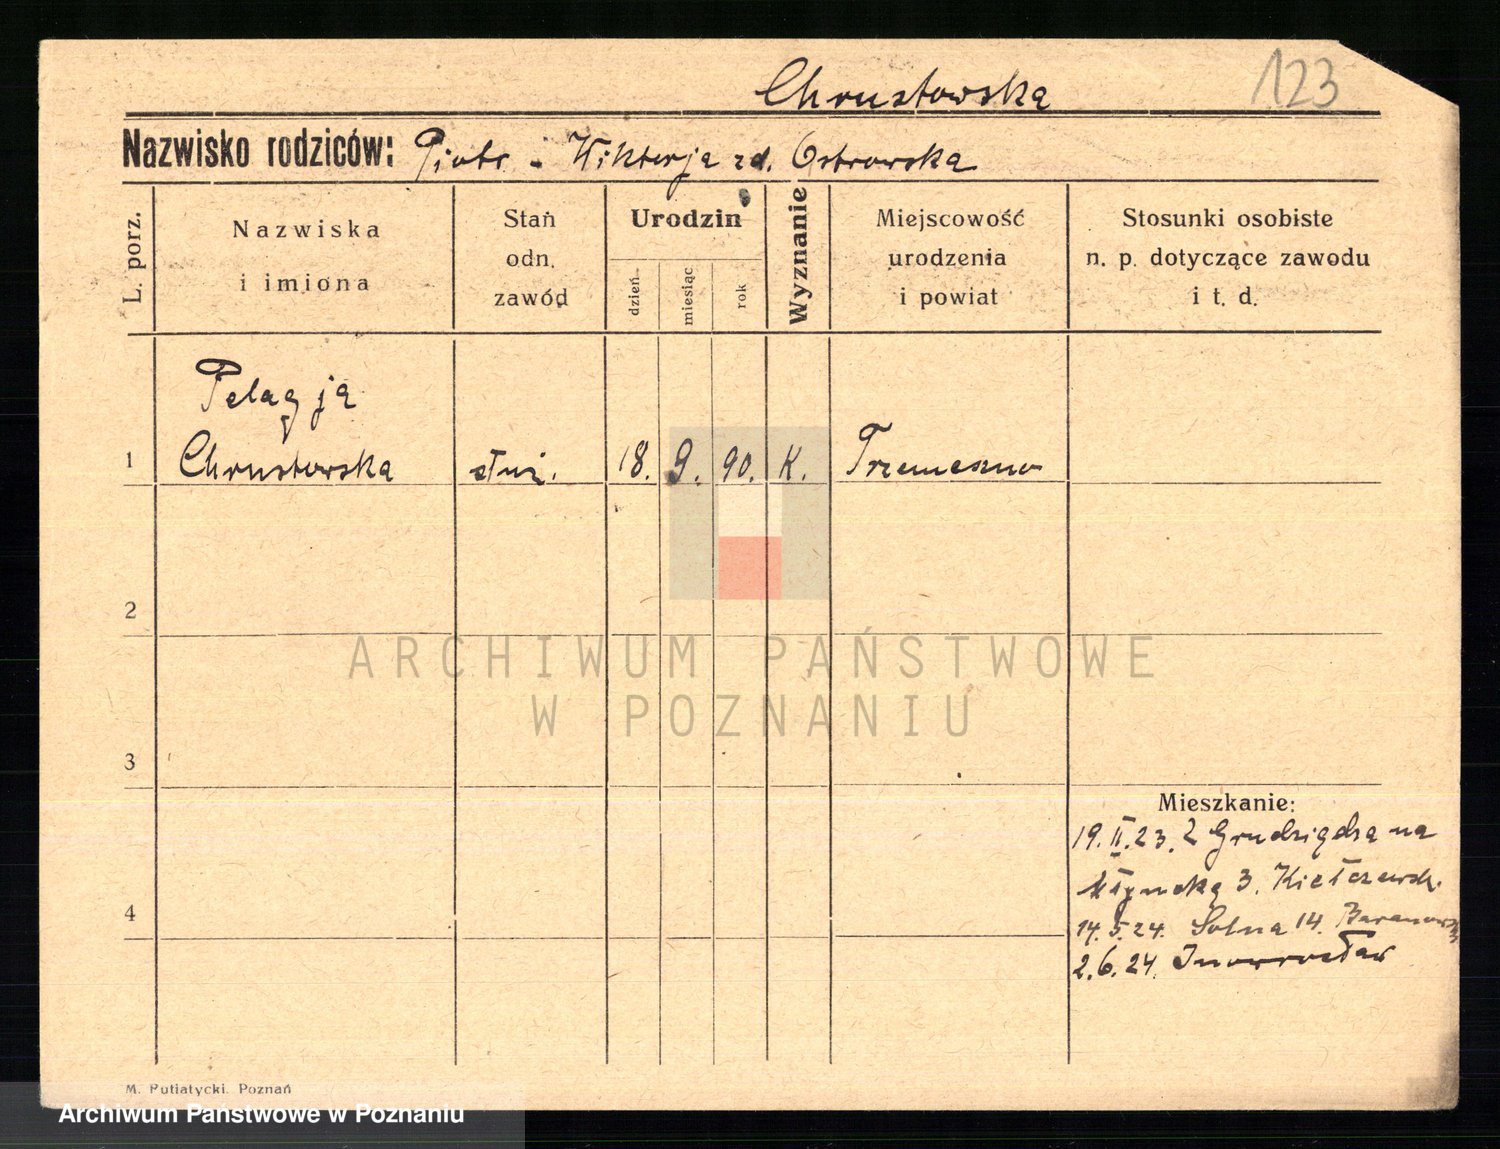 Chrustowska
123
Nazwisko rodziców: Piotr - Wiktorja zd. Ostrowska
L. porz.
Nazwiska
i imiona
Stan
odn.
zawód
Urodzin
dzień
miesiąc
rok
Wyznanie
Miejscowość
urodzenia
i powiat
Stosunki osobiste
n. p. dotyczące zawodu
i t. d.
Pelagja
1 Chrustowska służ. 18. 9. 90. K. Trzemeszno
2
ARCHIWUM PAŃSTWOWE
W POZNANIU
3
Mieszkanie:
19.II.23. Z Grudziądza na
Młyńską 3. Kiełczewsk.
4
14.5.24. Solna 14. Baranowsk
2.6.24. Inowrocław
M. Putiatycki. Poznań
Archiwum Państwowe w Poznaniu